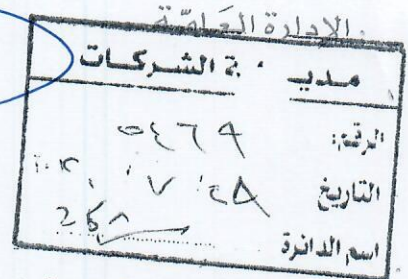 الإدارة العامة
مديـ ـة الشركات
الرقم: ٥٤٦٩
التاريخ ٢٨ ٧
اسم الدائرة